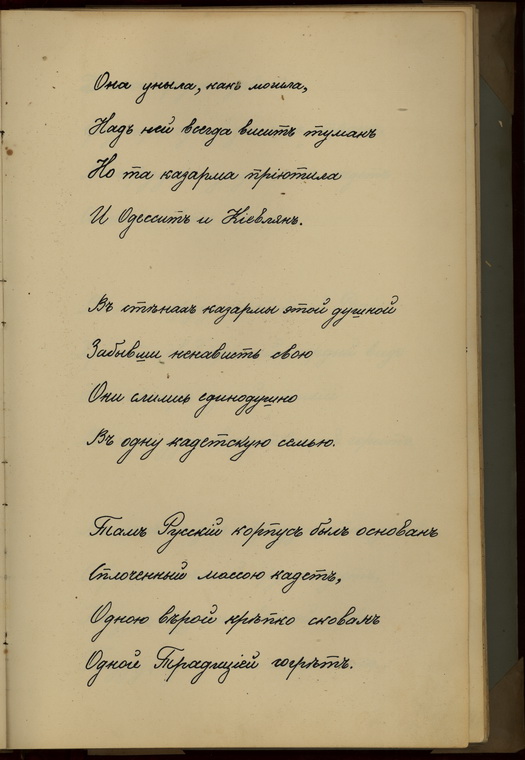 Она уныла, какъ могила,
Надъ ней всегда виситъ туманъ
Но та казарма пріютила
И Одесситъ и Кіевлянъ.
Въ стѣнахъ казармы этой душной
Забывши ненависть свою
Они слились единодушно
Въ одну кадетскую семью.
Тамъ Русскій корпусъ былъ основанъ
Сплоченный массою кадетъ,
Одною вѣрой крѣпко скованъ
Одной Традиціей согрѣтъ.